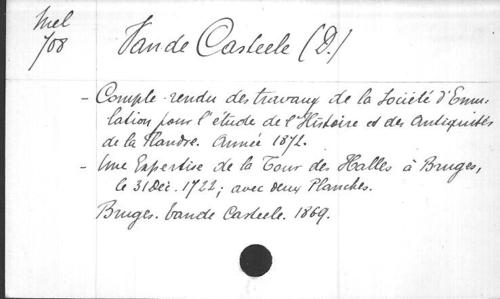 Mel
708
Van de Casteele (D.)
- Compte-rendu des travaux de la Société d'Emu-
lation pour l'étude de l'Histoire et des Antiquités
de la Flandre. Année 1872.
- Une Expertise de la Tour des Halles à Bruges,
le 31 Déc. 1722; avec deux Planches.
Bruges. Vande Casteele. 1869.